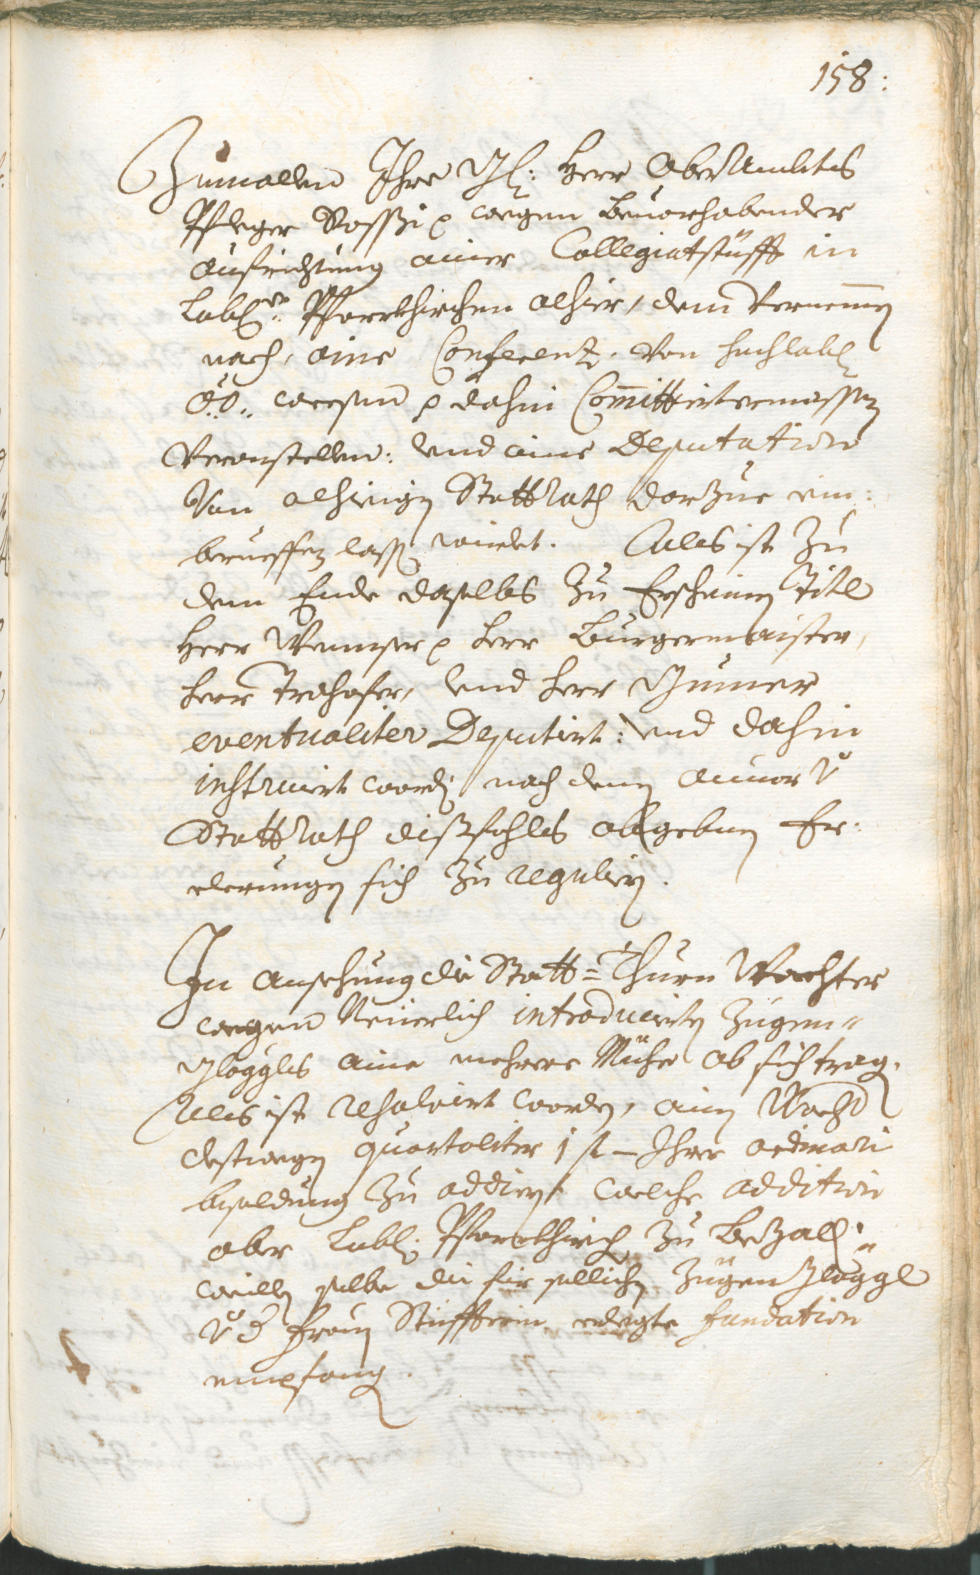 158:
Zumallen Ihro Gl: Herr OberAmbtes
Pfleger Rossi p wegen bevorhabender
Aufrichtung ainer Collegiatstüfft in
Lobl:en Pfarrkhirchen alhier, dem Vernemmen
nach, aine Conferenz, von hochlobl
O:Ö:. wesen p dahin Committirtermassen
Veranstellen: und aine Deputation
Von alhiesigen StattRath darzue ein:
berueffen lassen wirdet. Alls ist zu
dem Ende daselbs zu Erscheinen Titl
Herr Wenser p Herr Burgermaister,
Herr Trohofer, und Herr Gumer
eventualiter Deputirt: und dahin
instruirt worden nach denen
StattRath dißfahls abgebnen Er:
clerungen sich zu regulirn.
In ansehung die Statt=Thurn Wachter
wegen Neuerlich introducirten Zügen=
gloggls aine mehrere Mühe ob sich tragen.
Alls ist resolvirt worden, ainen Wacht
destwegen quartaliter 1 fl — Ihrer ordinari
besoldung zu addiren, welche addition
aber Lobl: Pfarrkhirch zu bezallen:
weillen selbe die für sollichen Zügengloggl
v: d: Frauen Stüffterin erlegte fundation
empfangen.